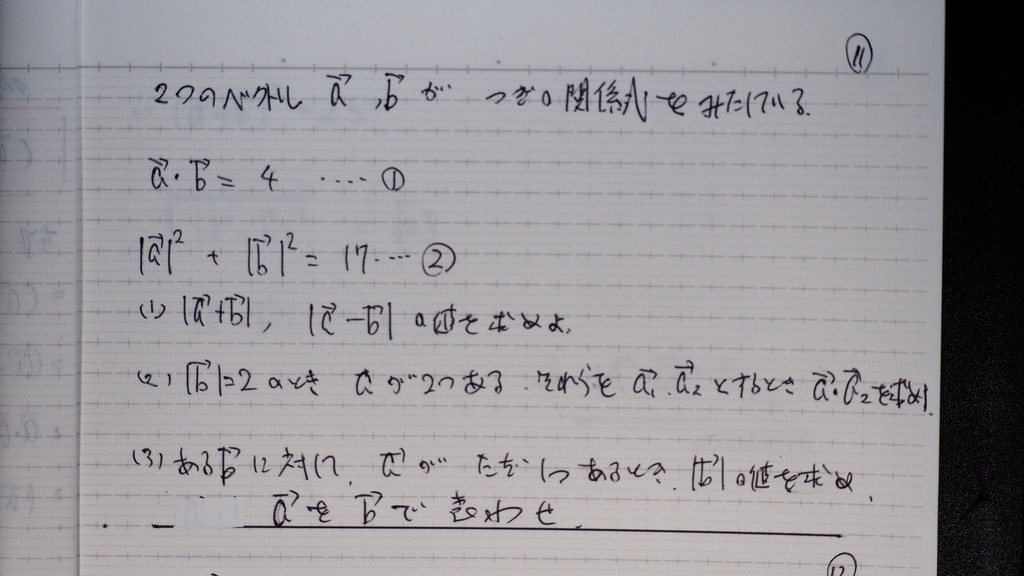 ⑪
2つのベクトル a⃗, b⃗ が つぎの関係式をみたしている.
a⃗・b⃗ = 4 ‥‥ ①
|a⃗|² + |b⃗|² = 17 ‥‥ ②
(1) |a⃗+b⃗|, |a⃗−b⃗| の値を求めよ.
(2) |b⃗|=2 のとき a⃗ が2つある. それらを a⃗₁, a⃗₂ とするとき a⃗₁・a⃗₂を求めよ.
(3) ある b⃗ に対して, a⃗ が ただ1つあるとき, |b⃗| の値を求め,
a⃗ を b⃗ で 表わせ.
⑫